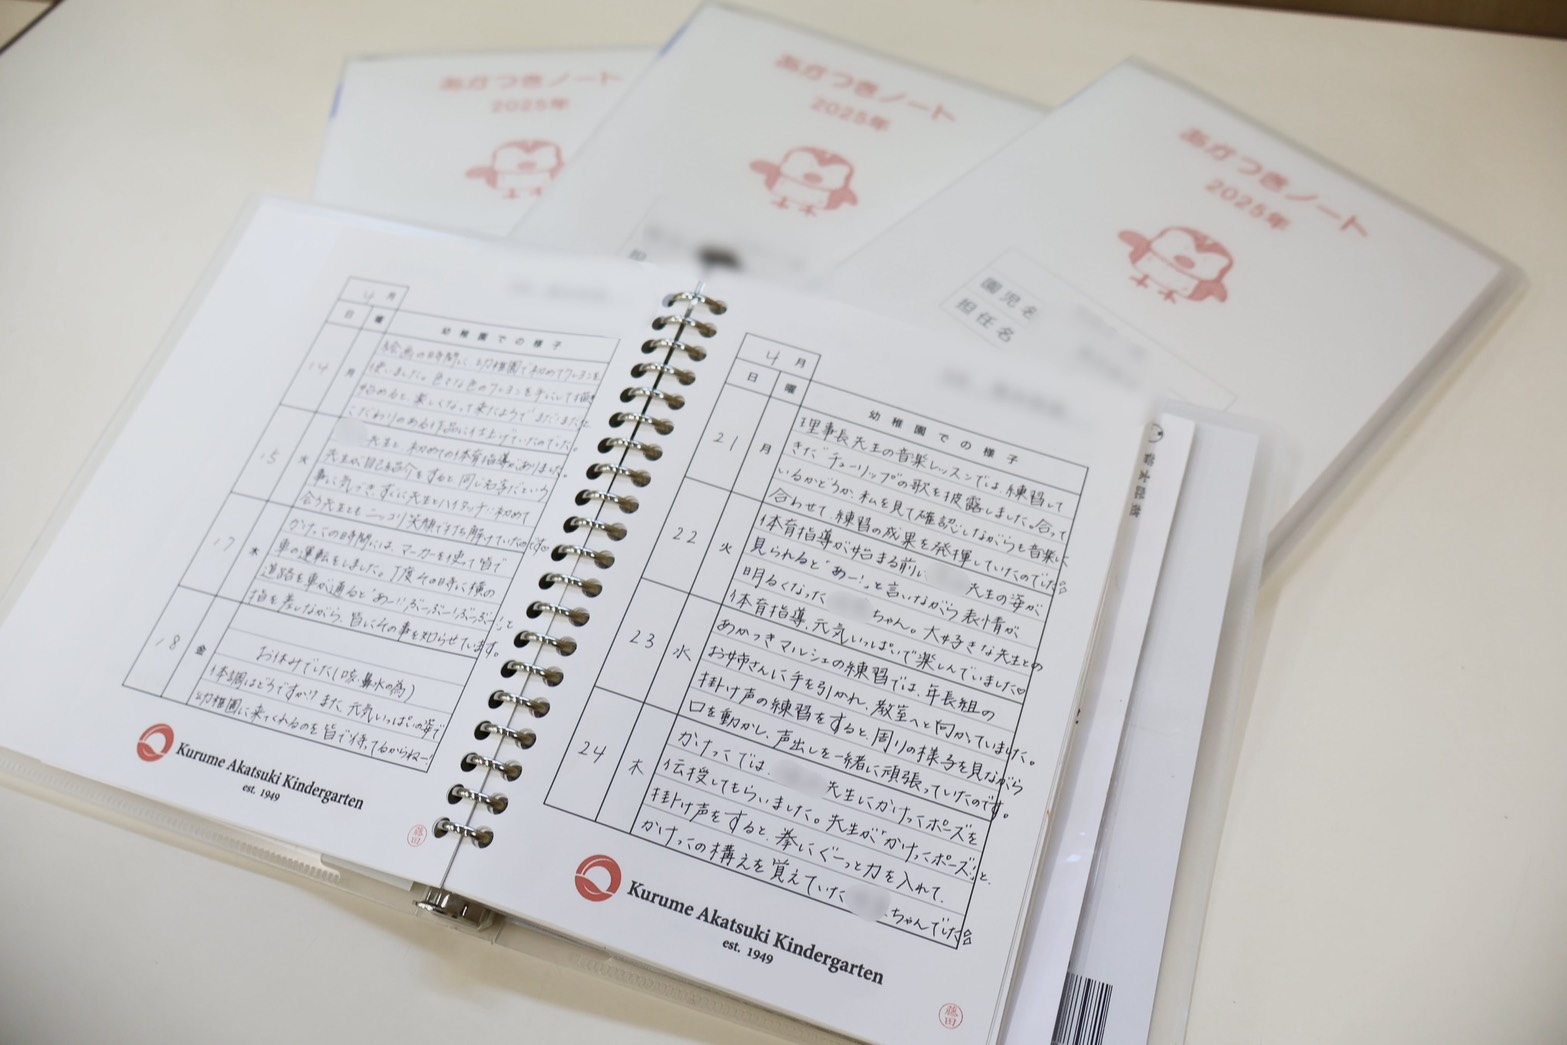 あかつきノート
2025年
あかつきノート
2025年
担
あかつきノート
2025年
園児名
担任名
4月
日 曜 幼稚園での様子
14 月 絵画の時間に、幼稚園で初めてクレヨンを
使いました。色々な色のクレヨンを手にして描き
始めると、楽しくなって来たようで
こだわりのある作品に仕上げていたのでした。
15 火 先生と、初めての体育指導がありました。
先生が自己紹介をすると、同じ名字だという
事に気づき、すぐに先生とハイタッチ!初めて
会う先生ともニッコリ笑顔で打ち解けていたのです
17 木 かけっこの時間には、マーカーを使って皆で
車の運転をしました。丁度その時に横の
道路を車が通ると"あー!ぶっぶー!ぶっぶー!"と
指を差しながら、皆にその事を知らせています。
18 金
お休みでした(咳・鼻水の為)
体調はどうですか?また、元気いっぱいの姿で
幼稚園に来てくれるのを皆で待ってるからねー!
Kurume Akatsuki Kindergarten
est. 1949
藤田
4月
日 曜 幼稚園での様子
21 月 理事長先生の音楽レッスンでは、練習して
きた"チューリップ"の歌を披露しました。合って
いるかどうか、私を見て確認しながらも音楽に
合わせて、練習の成果を発揮していたのでした
22 火 体育指導が始まる前に、先生の姿が
見られると"あー!"と言いながら表情が
明るくなったちゃん。大好きな先生との
体育指導、元気いっぱいで楽しんでいました♡
23 水 あかつきマルシェの練習では、年長組の
お姉さんに手を引かれ、教室へと向かっていました。
掛け声の練習をすると、周りの様子を見ながら
口を動かし、声出しを一緒に頑張っていたのです。
24 木 かけっこでは、先生にかけっこポーズを
伝授してもらいました。先生が"かけっこポーズ!"と、
掛け声をすると、拳にぐーっと力を入れて、
かけっこの構えを覚えていたちゃんでした
Kurume Akatsuki Kindergarten
est. 1949
藤田